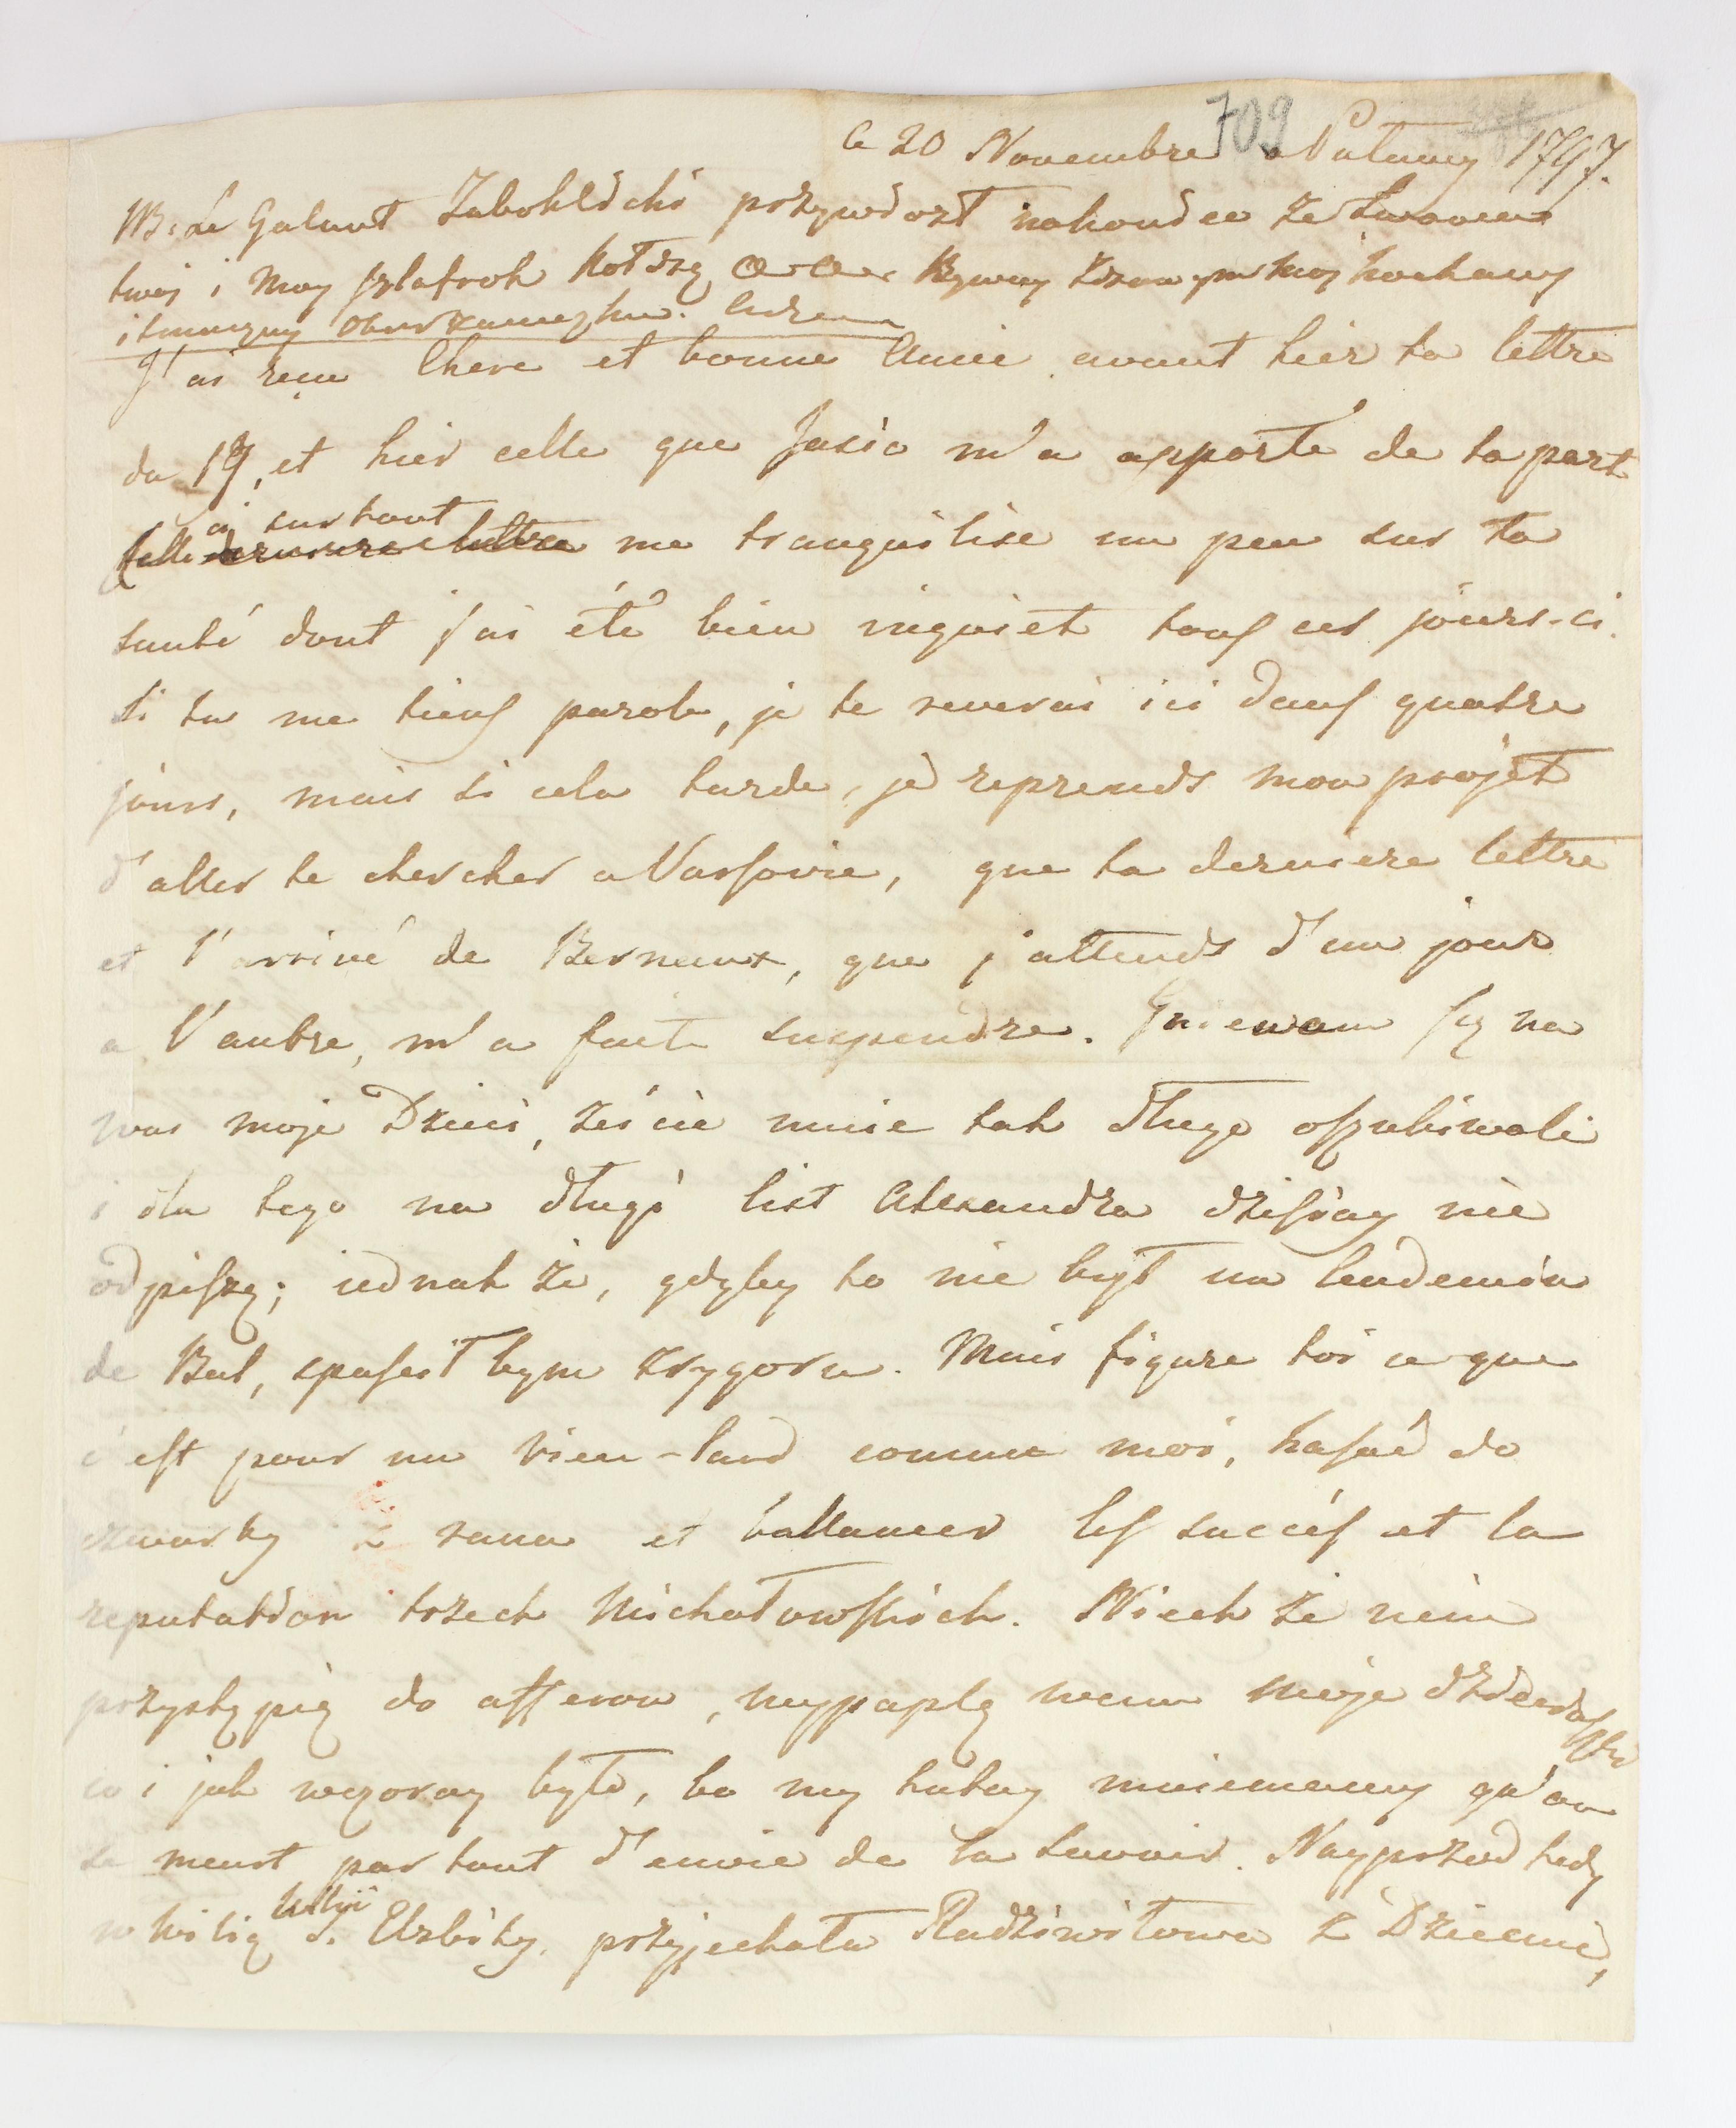 709
le 20 Novembre a Pulawy 1797.
NB. Le Galant Zaboklicki przywiozł nakoniec ze Lwowa
twoj i moy szlafrok kołdrę Bywaj zdrow moj kochany
i
J'ai reçu Chere et bonne Amie avant hier ta lettre
du 17, et hier celle que Jasio m'a apporté de ta part
ci surtout
Celle derniere lettre me tranquilise un peu sur ta
santé dont j'ai été bien inquiet tous ces jours-ci.
Si tu me tiens parole, je te reverai ici dans quatre
jours, mais si cela tarde, je reprends mon projet
d'aller te chercher a Varsovie, que ta derniere lettre
et l'arrivé de Berneaux, que j'attends d'un jour
a l'autre, m'a fait suspendre. Gniewam się na
was moje Dzieci, żeście mnie tak długo oszukiwali
i dla tego na długi list Alexandra dzisiay nie
odpiszę; iednak że, gdyby to nie był un lendemain
de Bal, spuścił bym z rygoru. Mais figure toi ce que
c'est pour un viellard comme moi, hasać do
czwarty z rana et ballancer les succés et la
reputation trzech Michałowskich. Niech że nim
przystąpię do affarow, wypaplę wam moje dzieciaszki
co i jak wczoray było, bo my tutay mniemamy qu'on
se meurt par tout d'envie de la savoir. Nayprzod tedy
Wilii
w wilią S. Elzbiety, przyjechała Radziwiłowa z Dziecmi,